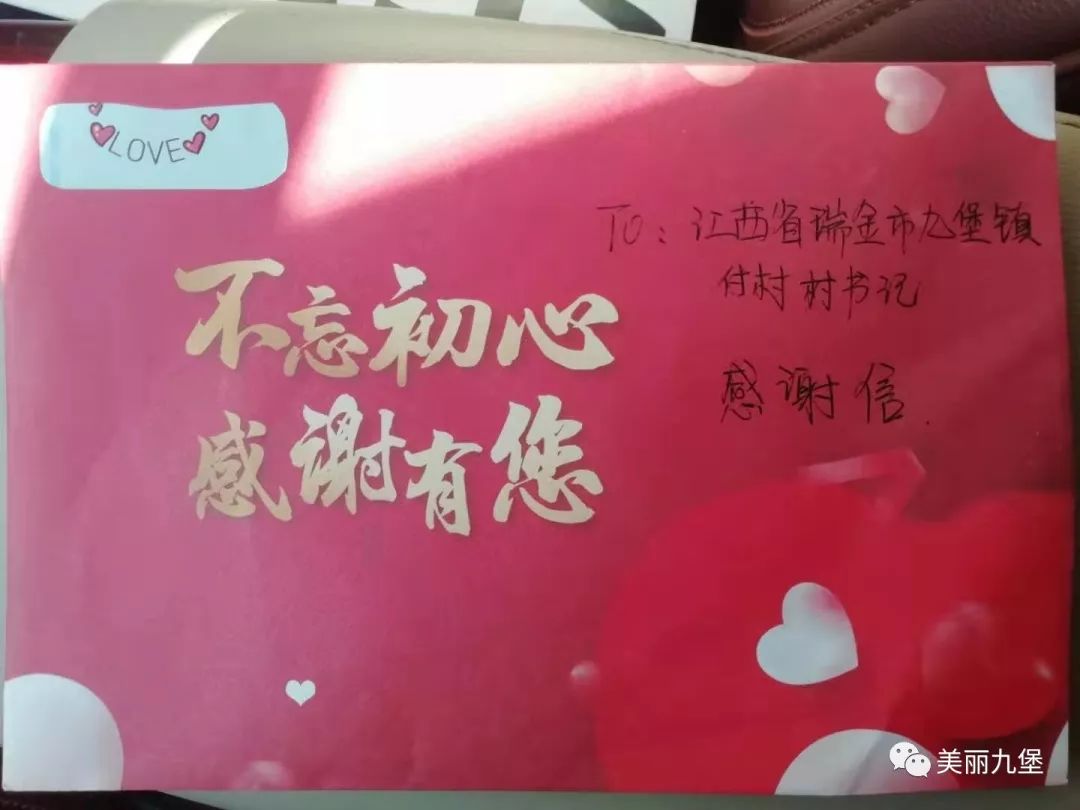 LOVE
不忘初心
感谢有您
TO：江西省瑞金市九堡镇
付村村书记
感谢信.
美丽九堡